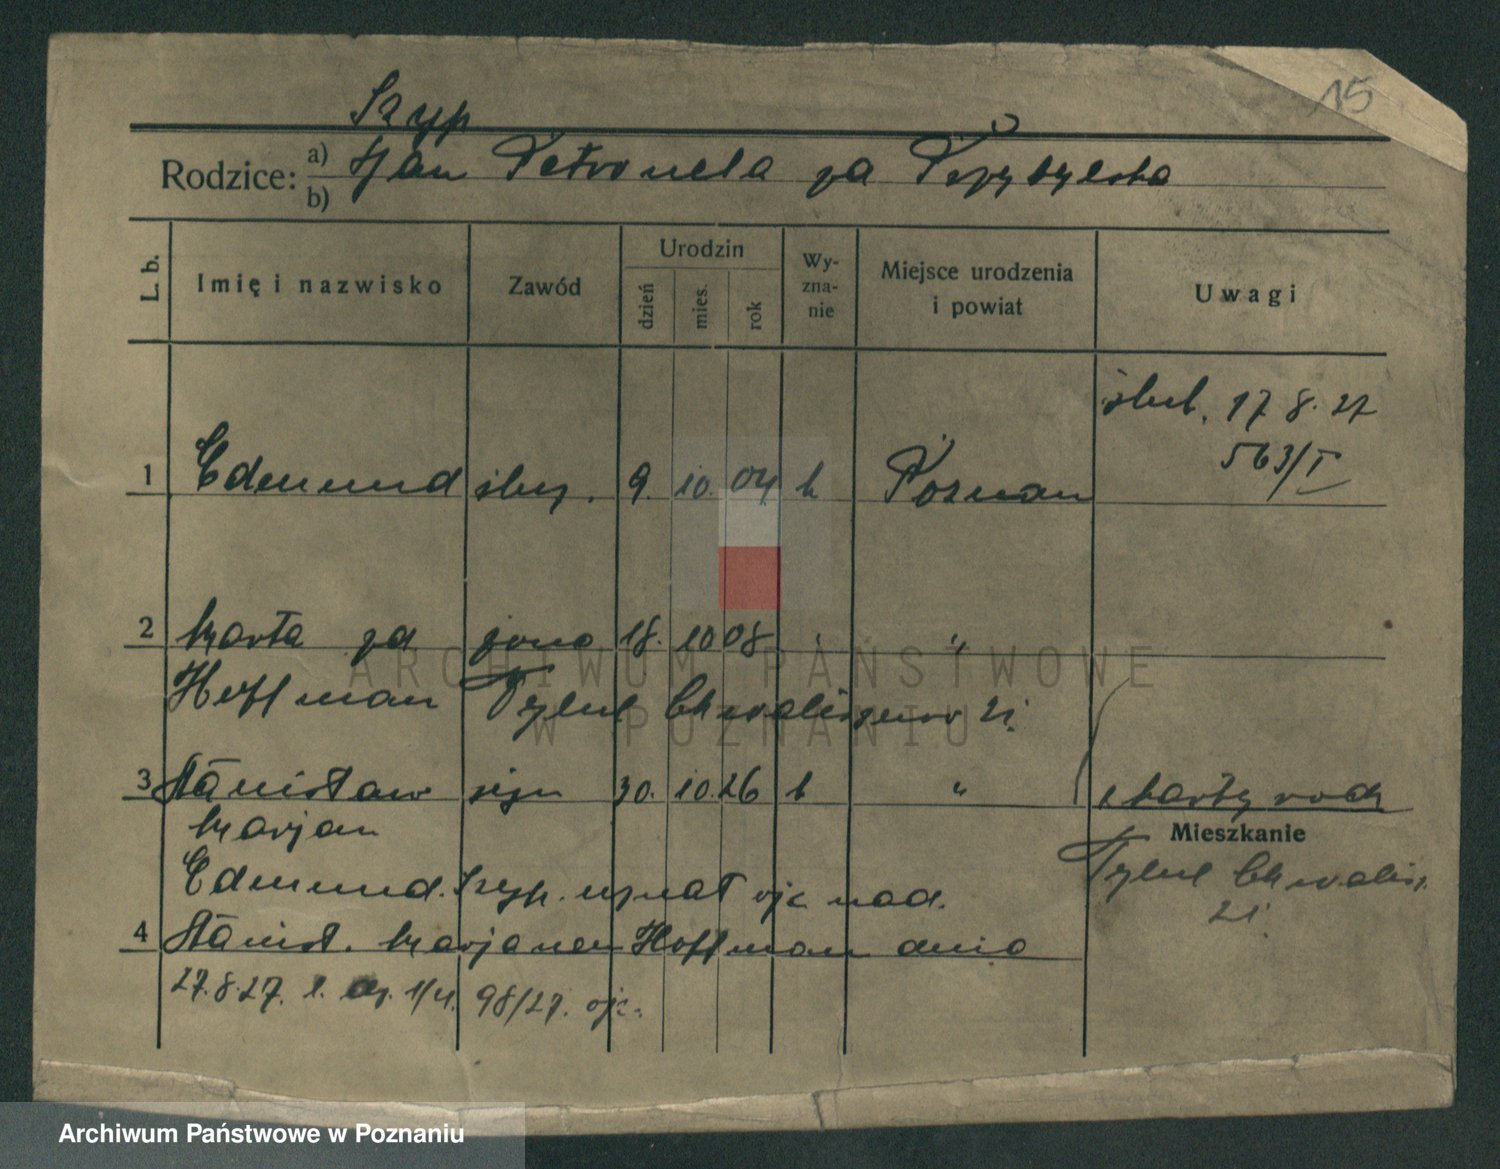 15
Szyp
Rodzice: a) Jan Petronela zd Przybylska
b)
L. b. Imię i nazwisko Zawód Urodzin dzień mies. rok Wy-zna-nie Miejsce urodzenia i powiat Uwagi
ślub. 17 8. 27
563/I
1 Edmund ślus. 9. 10. 04 k Poznan
2 Marta zd żona 18. 10 08 " "
Hoffman Tylne Chwaliszewo 21.
3 Stanisław syn 30. 10. 26 k "
Marjan
Mieszkanie
Tylne Chwalisz.
21.
Edmund. Szyp. uznał ojc. nad.
4 Stanisł. Marjanem Hoffman dnia
27.8.27. 1/4. 98/27. ojc.
ARCHIWUM PAŃSTWOWE
W POZNANIU
Archiwum Państwowe w Poznaniu